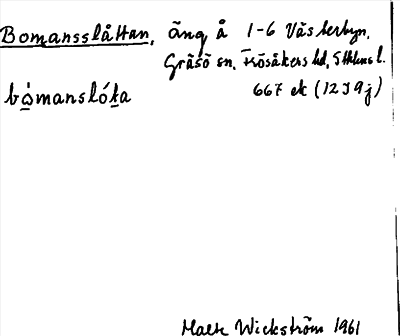 Bomansslåttan, äng å 1-6 Västerbyn,
Gräsö sn. Frösåkers hd, Sthlms l.
bòmanslóta 667 ek (12J9j)
Malte Wickström 1961